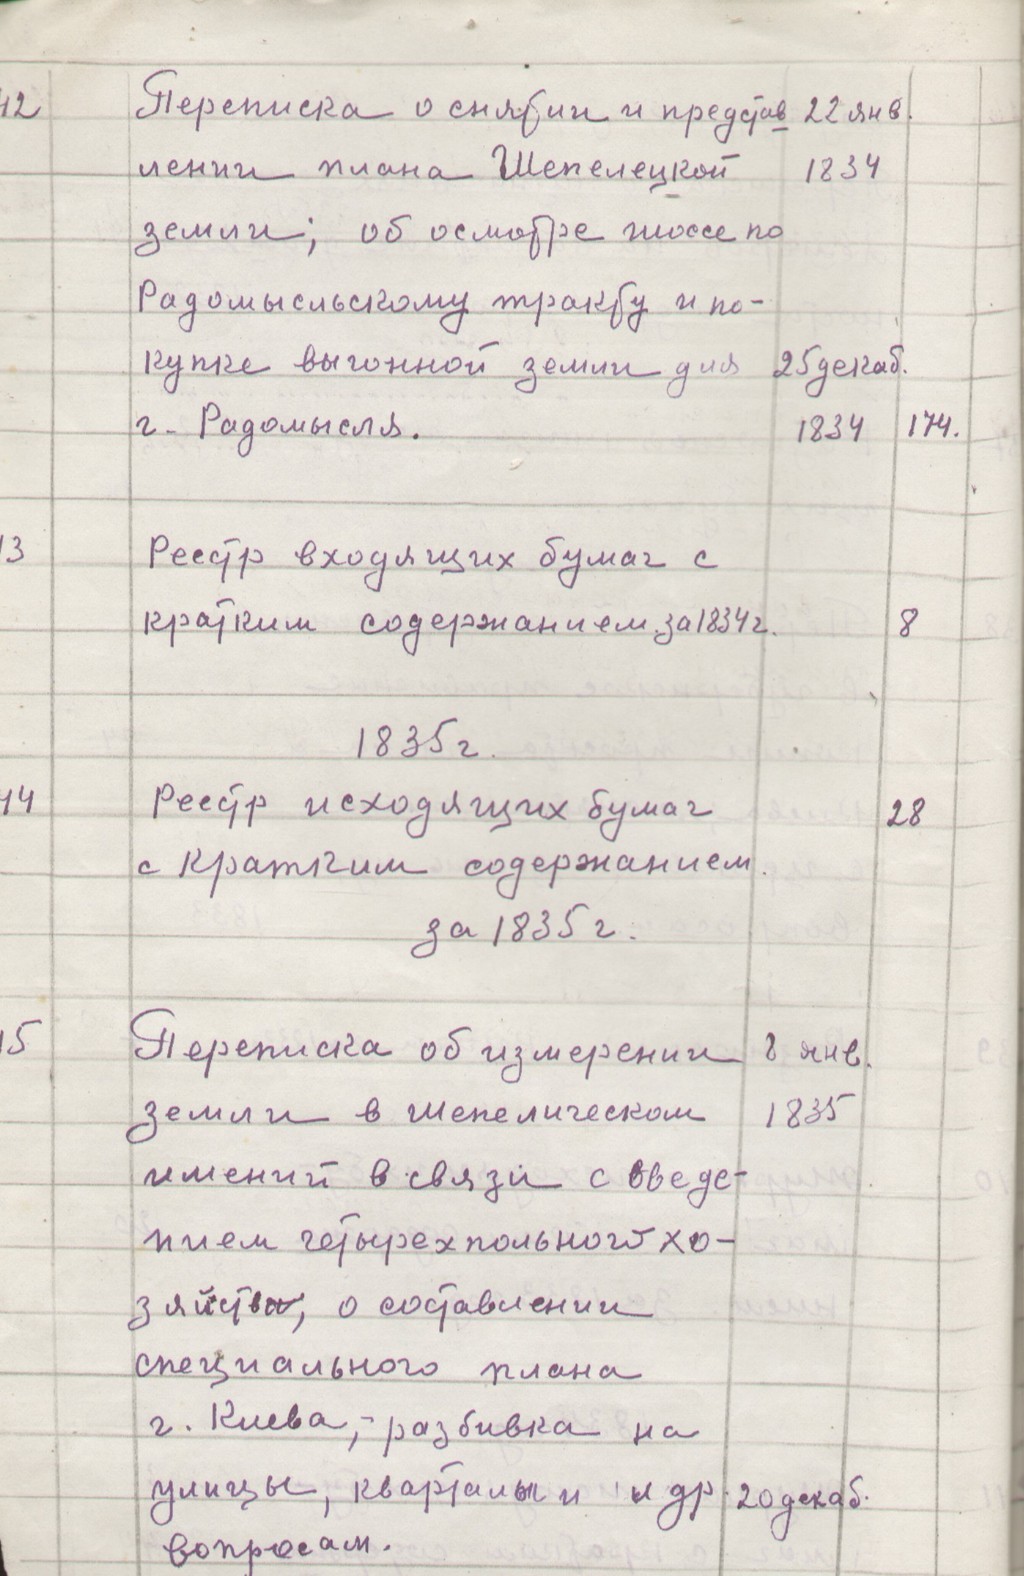 12 Переписка о снятии и представ 22 янв.
лении плана Шепелецкой 1834
земли; об осмотре шоссе по
Радомысльскому тракту и по-
купке выгонной земли для 25 декаб.
г. Радомысля. 1834 174.
13 Реестр входящих бумаг с
кратким содержанием за 1834 г. 8
1835 г.
14 Реестр исходящих бумаг 28
с кратким содержанием
за 1835 г.
15 Переписка об измерении 8 янв.
земли в Шепелическом 1835
имений в связи с введе-
нием четырехпольного хо-
зяйства, о составлении
специального плана
г. Киева, - разбивка на
улицы, кварталы и др. 20 декаб.
вопросам.